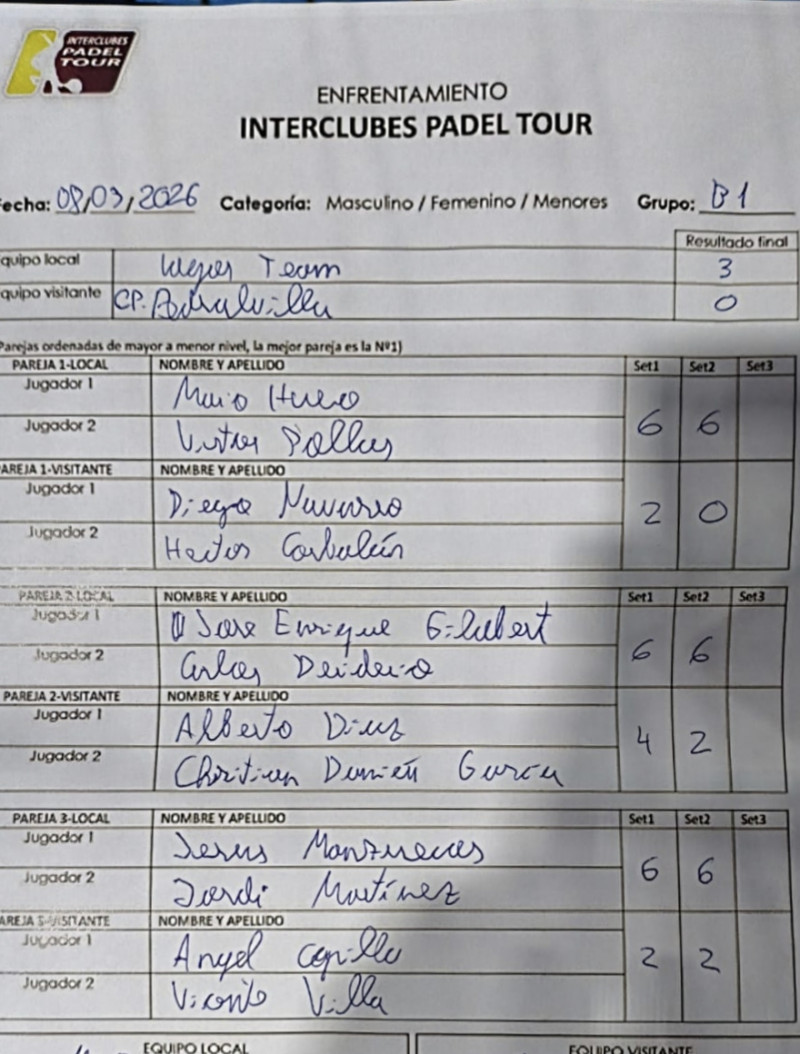 INTERCLUBES
PADEL
TOUR
ENFRENTAMIENTO
INTERCLUBES PADEL TOUR
echa: 08/03/2026 Categoría: Masculino / Femenino / Menores Grupo: B1
Resultado final
quipo local Team 3
quipo visitante CP. 0
Parejas ordenadas de mayor a menor nivel, la mejor pareja es la Nº1)
PAREJA 1-LOCAL NOMBRE Y APELLIDO Set1 Set2 Set3
Jugador 1
Jugador 2 6 6
AREJA 1-VISITANTE NOMBRE Y APELLIDO
Jugador 1 Diego Navarro 2 0
Jugador 2 Hector
PAREJA 2-LOCAL NOMBRE Y APELLIDO Set1 Set2 Set3
Jugador 1 Jose Enrique Gilabert
Jugador 2 Carlos 6 6
PAREJA 2-VISITANTE NOMBRE Y APELLIDO
Jugador 1 Alberto 4 2
Jugador 2 Christian Damián García
PAREJA 3-LOCAL NOMBRE Y APELLIDO Set1 Set2 Set3
Jugador 1 Jesus 6 6
Jugador 2 Jordi Martínez
AREJA 3-VISITANTE NOMBRE Y APELLIDO
Jugador 1 Angel 2 2
Jugador 2 Vicente Villa
EQUIPO LOCAL EQUIPO VISITANTE